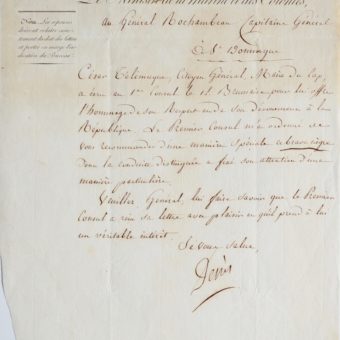 Le Ministre de la Marine et des Colonies,
au Général Rochambeau Capitaine Général
à St Domingue
Nota. Les réponses
doivent relater exac-
tement la date des lettres
et porter en marge l'in-
dication du Bureau.
César Télémaque, Citoyen Général, Maire du Cap,
a écrit au 1er Consul le 15 Brumaire pour lui offrir
l'hommage de son Respect et de son dévouement à la
République. Le Premier Consul m'a ordonné de
vous recommander d'une manière spéciale ce brave nègre
dont la conduite distinguée a fixé son attention d'une
manière particulière.
Veuillez, Général, lui faire savoir que le Premier
Consul a reçu sa lettre avec plaisir et qu'il prend à lui
un véritable intérêt.
Je vous salue,
Decrès